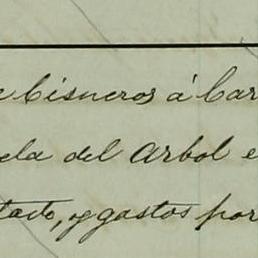 e Cisneros á Car
ela del Arbol e
tado, y gastos por